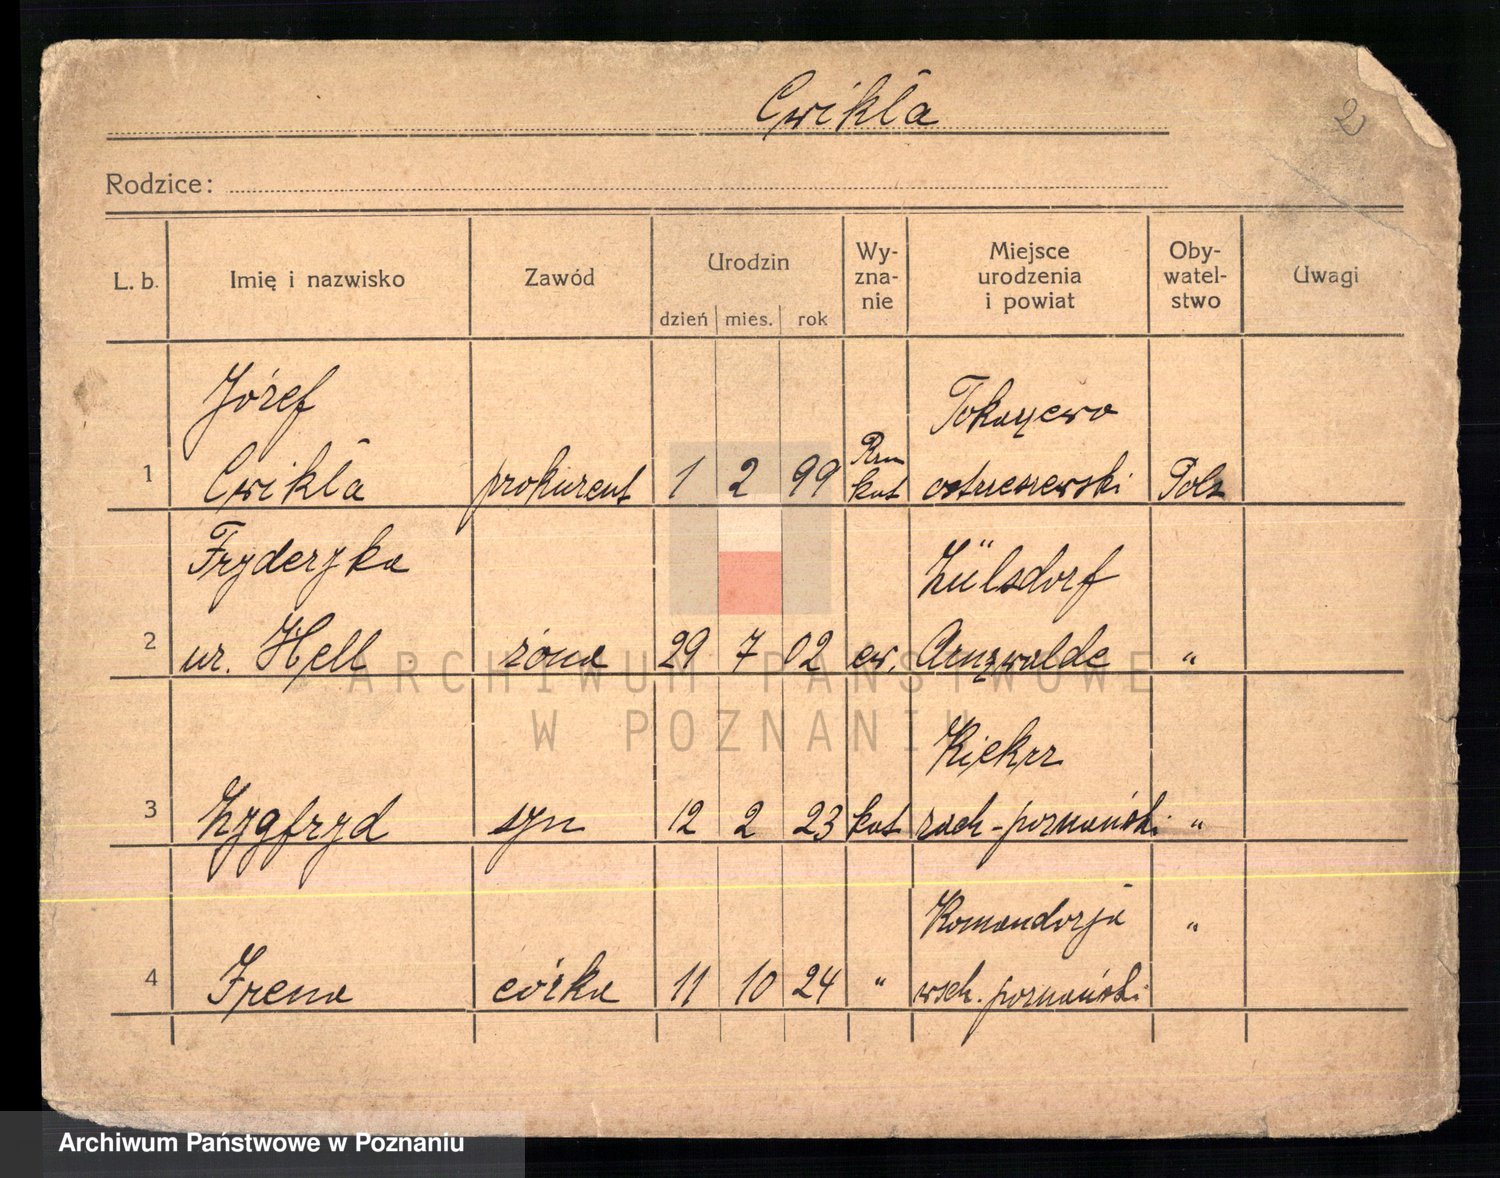 Cwikła
2
Rodzice:
L. b. Imię i nazwisko Zawód Urodzin dzień mies. rok Wy-zna-nie Miejsce urodzenia i powiat Oby-watel-stwo Uwagi
Józef Tokarzewo
Rzm
1 Cwikła prokurent 1 2 99 kat ostrzeszewski Pols
Fryderyka Zülsdorf
2 ur. Hell żona 29 7 02 ew. Arnswalde "
Kiekrz
3 Zygfryd syn 12 2 23 kat zach-poznański "
Komandorja "
4 Irena córka 11 10 24 " wsch. poznański
ARCHIWUM PAŃSTWOWE
W POZNANIU
Archiwum Państwowe w Poznaniu